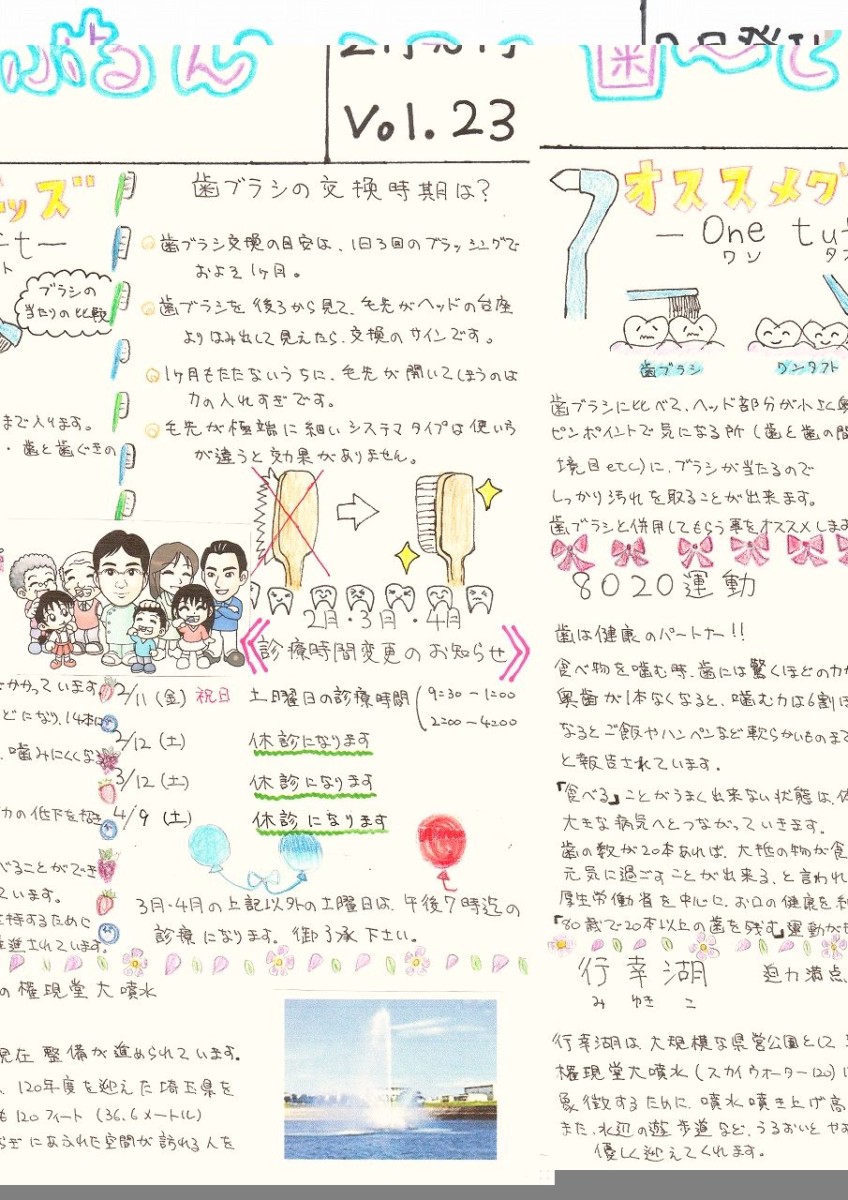 ぶるん
Vol. 23
歯ブラシの交換時期は?
歯ブラシ交換の目安は、1日3回のブラッシングで
およそ1ヶ月。
歯ブラシを後ろから見て、毛先がヘッドの台座
よりはみ出して見えたら、交換のサインです。
1ヶ月もたたないうちに、毛先が開いてしまうのは
力の入れすぎです。
毛先が極端に細いシステマタイプは使い方
が違うと効果がありません。
ッズ
ブラシの
当たりの比較
まで入ります。
・歯と歯ぐきの
2月・3月・4月
診療時間変更のお知らせ
2/11(金)祝日 土曜日の診療時間 9:30~1:00
2:00~4:00
2/12(土) 休診になります
3/12(土) 休診になります
4/9(土) 休診になります
3月・4月の上記以外の土曜日は、午後7時迄の
診療になります。御了承下さい。
かかっています
どになり、14本
、噛みにくくな
力の低下を招き
べることができ
ています。
維持するために
推進されています。
の権現堂大噴水
現在整備が進められています。
、120年度を迎えた埼玉県を
も120フィート(36.6メートル)
らぎにあふれた空間が訪れる人を
オススメグ
— One tuf
ワン タフ
歯ブラシ
ワンタフト
歯ブラシにくらべて、ヘッド部分が小さく奥
ピンポイントで気になる所(歯と歯の間
境目etc)に、ブラシが当たるので
しっかり汚れを取ることが出来ます。
歯ブラシと併用してもらう事をオススメします
8020運動
歯は健康のパートナー!!
食べ物を噛む時、歯には驚くほどの力が
奥歯が1本なくなると、噛む力は6割ほ
なるとご飯やハンペンなど軟らかいものまで
と報告されています。
『食べる』ことがうまく出来ない状態は、体
大きな病気へとつながっていきます。
歯の数が20本あれば、大抵の物が食
元気に過ごすことが出来る、と言われ
厚生労働省を中心に、お口の健康を維
『80歳で20本以上の歯を残す』運動が
行幸湖 迫力満点
みゆきこ
行幸湖は、大規模な県営公園として
権現堂大噴水(スカイウォーター120)は
象徴するために、噴水噴き上げ高
また、水辺の遊歩道など、うるおいとやす
優しく迎えてくれます。